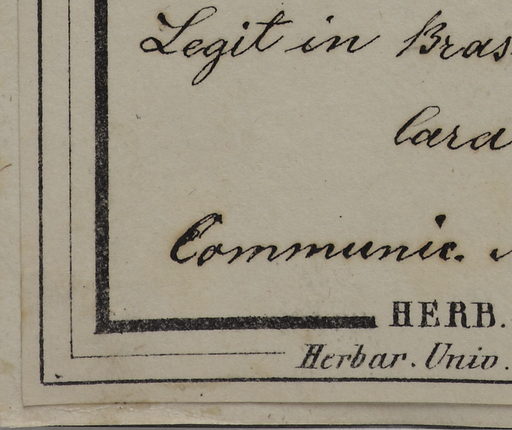 Legit in Bras
Cara
Communic.
HERB.
Herbar. Univ.